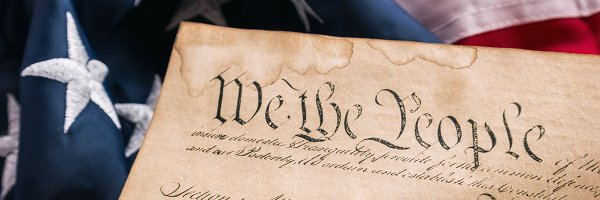 We the People of th
ensure domestic Tranquility, provide for the common defence
and our Posterity, do ordain and establish this Constitut
Section